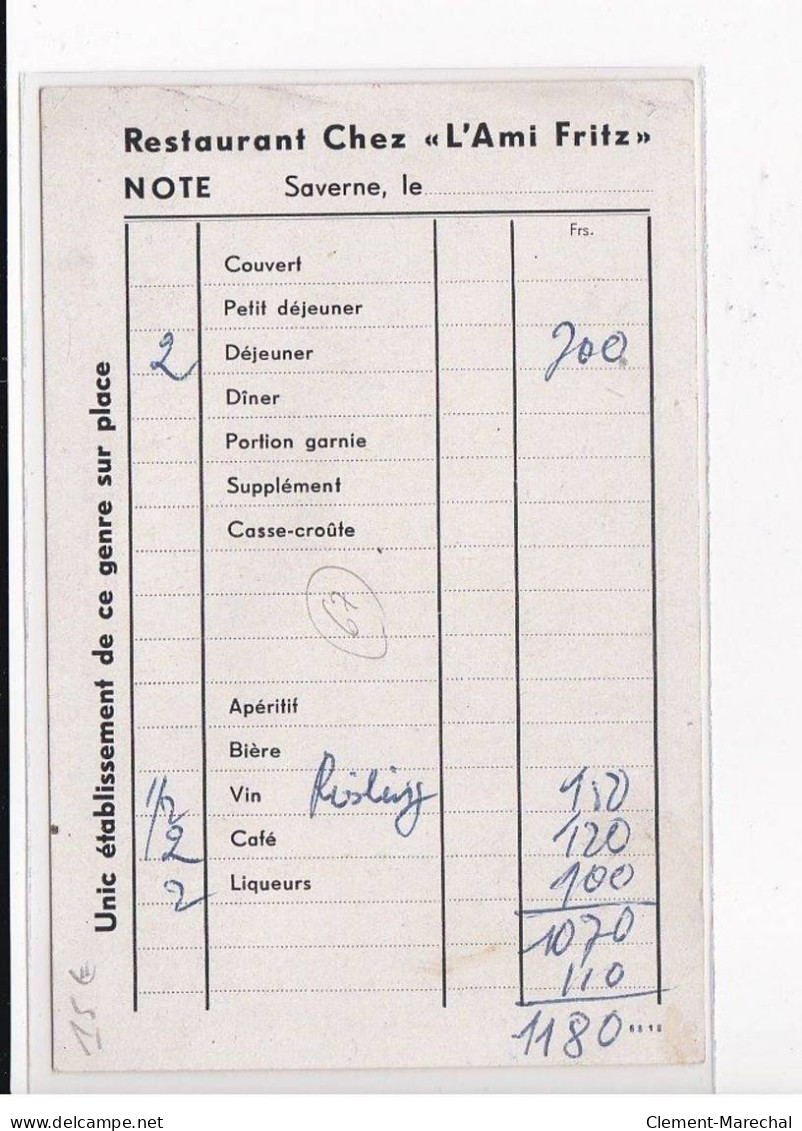 Restaurant Chez «L'Ami Fritz»
NOTE Saverne, le
Frs.
Couvert
Petit déjeuner
2 Déjeuner 700
Dîner
Portion garnie
Supplément
Casse-croûte
67
Apéritif
Bière
1/2 Vin Riesling 150
2 Café 120
2 Liqueurs 100
1070
110
1180
Unic établissement de ce genre sur place
15€
delcampe.net
Clement-Marechal